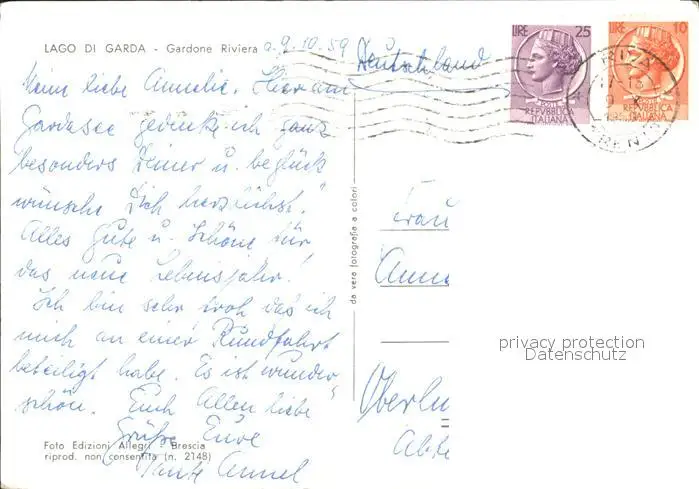 LAGO DI GARDA - Gardone Riviera a. 9.10.59
Deutschland
LIRE 25
POSTE
REPUBBLICA
ITALIANA
LIRE 10
REPUBBLICA
ITALIANA
Meine liebe Annelie. Hier am
Gardasee gedenke ich ganz
besonders Deiner u. beglück
wünsche Dich herzlichst.
Alles Gute u. Schöne für
das neue Lebensjahr!
Ich bin sehr froh das ich
mich an einer Rundfahrt
beteiligt habe. Es ist wunder
schön. Euch Allen liebe
Grüße Eure
Tante Annel
Foto Edizioni Allegri - Brescia
riprod. non consentita (n. 2148)
da vera fotografia a colori
Frau
Anne
Oberlu
privacy protection
Datenschutz